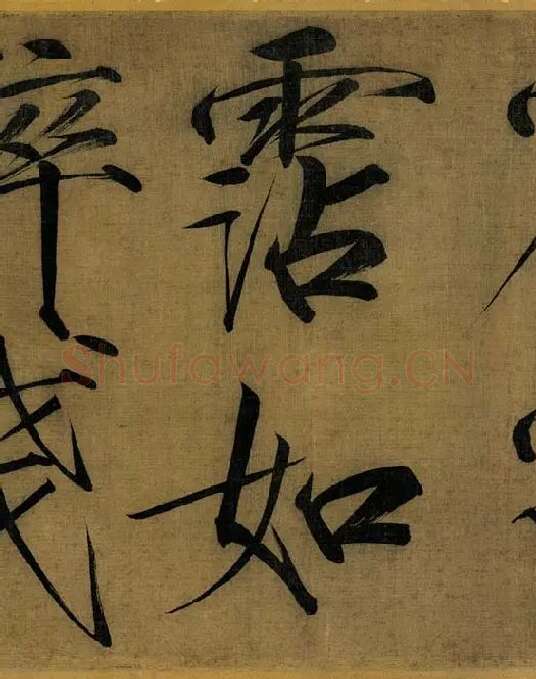 霑如
醉殘
Shufawang.CN